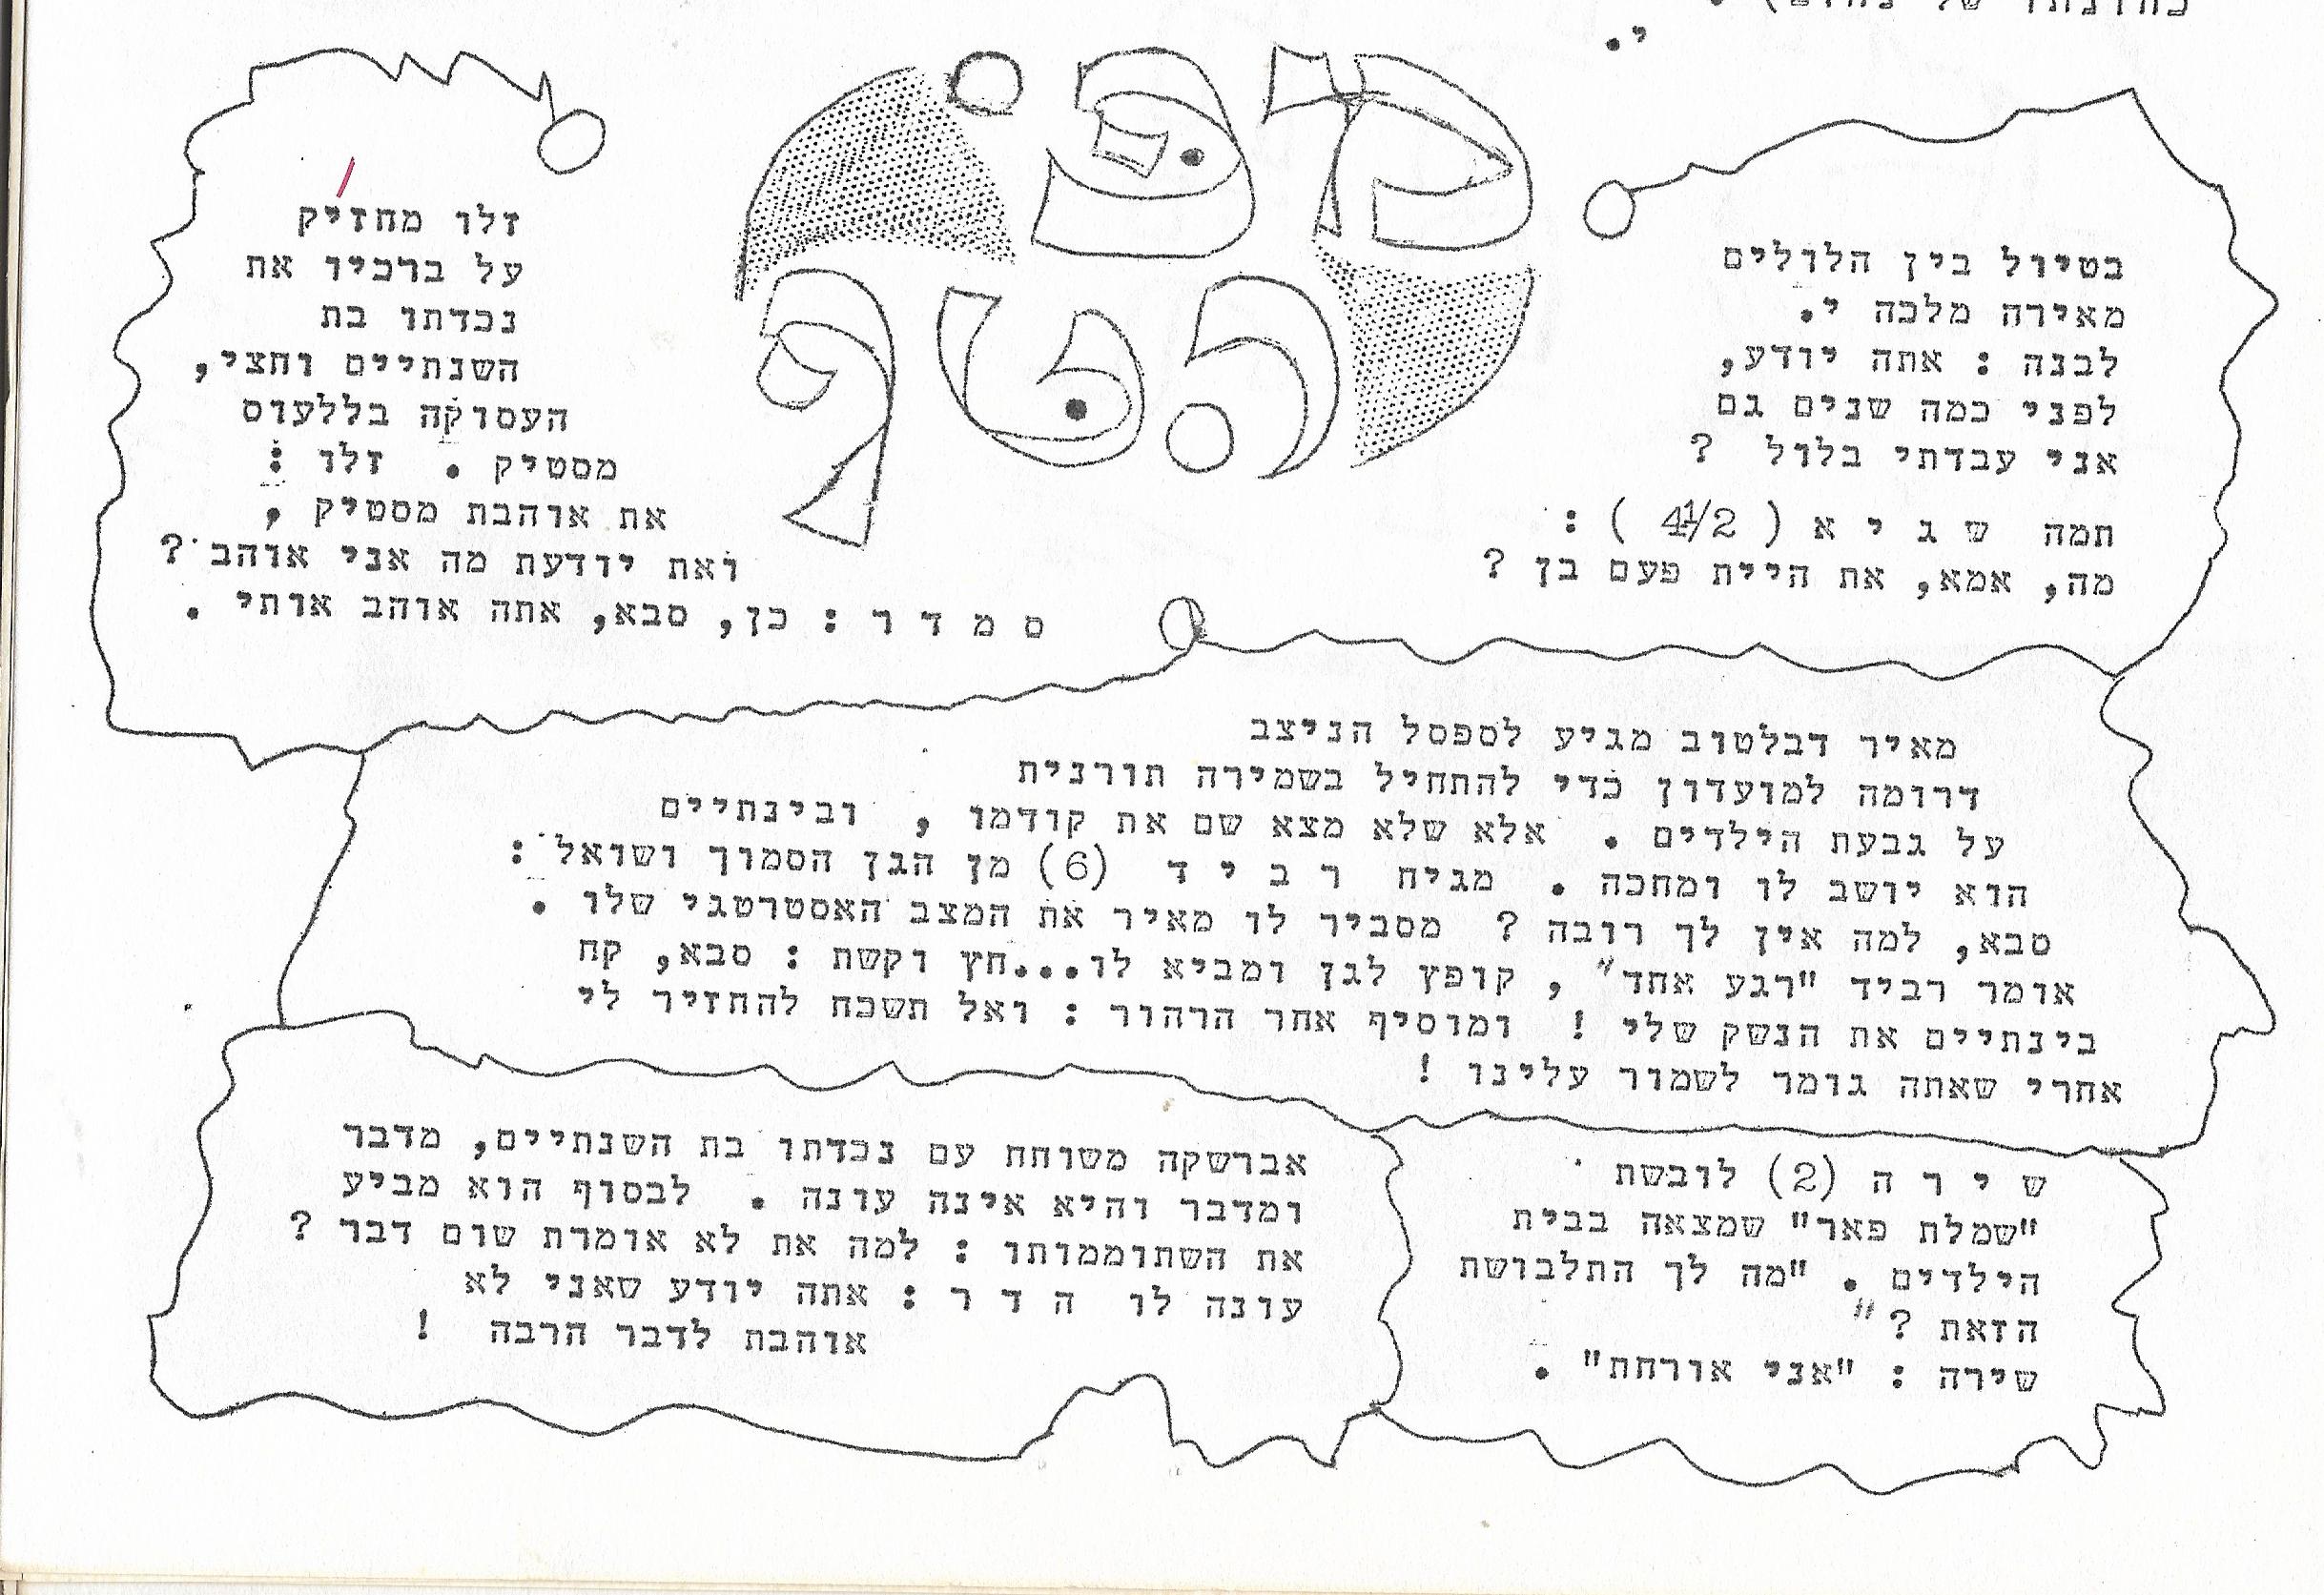 י.
בטיול בין הלולים
מאירה מלכה י.
לבנה : אתה יודע,
לפני כמה שנים גם
אני עבדתי בלול ?
תמה ש ג י א ( 4½ ) :
מה, אמא, את היית פעם בן ?
זלו מחזיק
על ברכיו את
נכדתו בת
השנתיים וחצי,
העסוקה בללעוס
מסטיק . זלו :
את אוהבת מסטיק ,
ואת יודעת מה אני אוהב ?
ס מ ד ר : כן, סבא, אתה אוהב אותי .
מאיר דבלטוב מגיע לספסל הניצב
דרומה למועדון כדי להתחיל בשמירה תורנית
על גבעת הילדים . אלא שלא מצא שם את קודמו , ובינתיים
הוא יושב לו ומחכה . מגיח ר ב י ד (6) מן הגן הסמוך ושואל :
סבא, למה אין לך רובה ? מסביר לו מאיר את המצב האסטרטגי שלו .
אומר רביד "רגע אחד" , קופץ לגן ומביא לו...חץ וקשת : סבא, קח
בינתיים את הנשק שלי ! ומוסיף אחר הרהור : ואל תשכח להחזיר לי
אחרי שאתה גומר לשמור עלינו !
ש י ר ה (2) לובשת
"שמלת פאר" שמצאה בבית
הילדים . "מה לך התלבושת
הזאת ? "
שירה : "אני אורחת" .
אברשקה משוחח עם נכדתו בת השנתיים, מדבר
ומדבר והיא אינה עונה . לבסוף הוא מביע
את השתוממותו : למה את לא אומרת שום דבר ?
עונה לו ה ד ר : אתה יודע שאני לא
אוהבת לדבר הרבה !